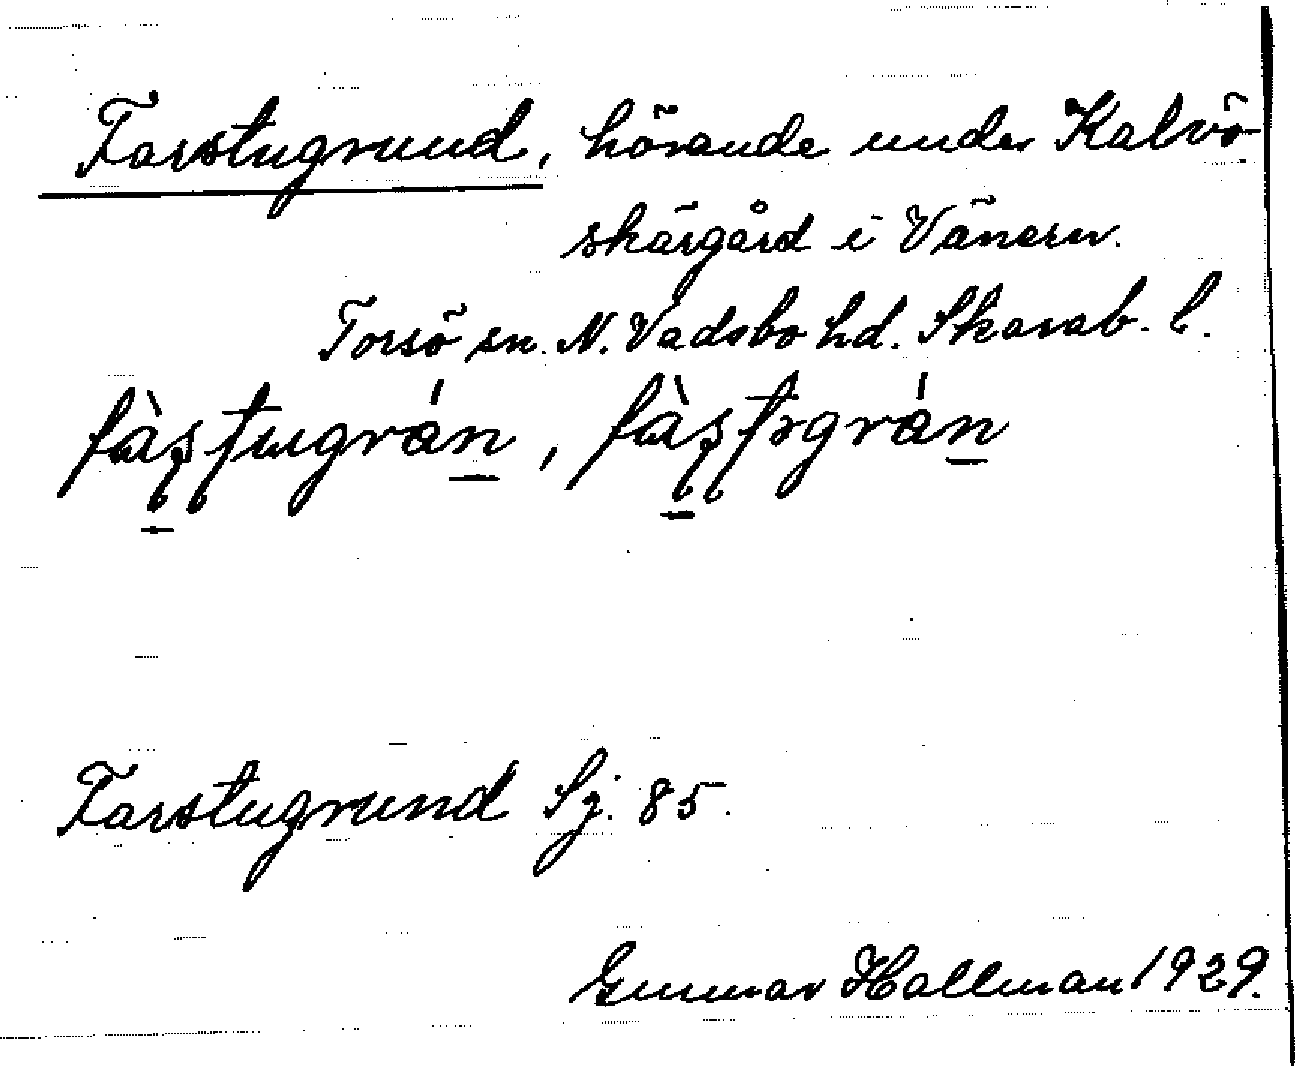 Farstugrund, hörande under Kalvö
skärgård i Vänern.
Torsö sn. N. Vadsbo hd. Skarab. l.
Farstugrund Sj. 85.
Gunnar Hallman 1929.